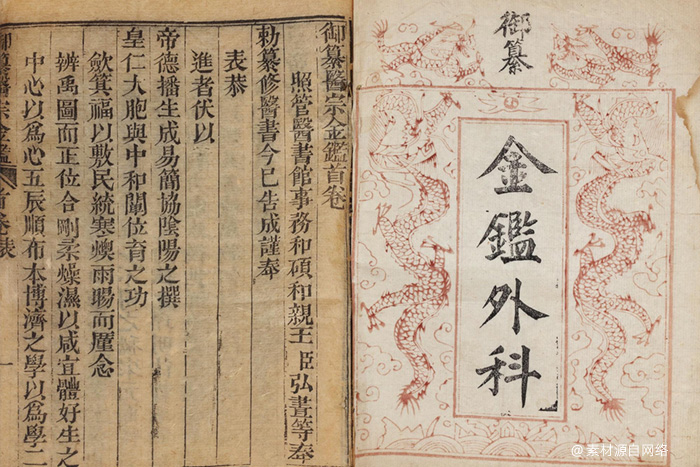 御纂
金鑑外科
御纂醫宗金鑑首卷
照管醫書館事務和碩和親王臣弘晝等奉
勅纂修醫書今已告成謹奉
表恭
進者伏以
帝德播生成易簡協陰陽之撰
皇仁大胞與中和闡位育之功
斂箕福以敷民統寒燠雨暘而厪念
辨禹圖而正位合剛柔燥濕以咸宜體好生之
中心以爲心五辰順布本博濟之學以爲學二
御纂醫宗金鑑 首卷 表 一
@素材源自网络